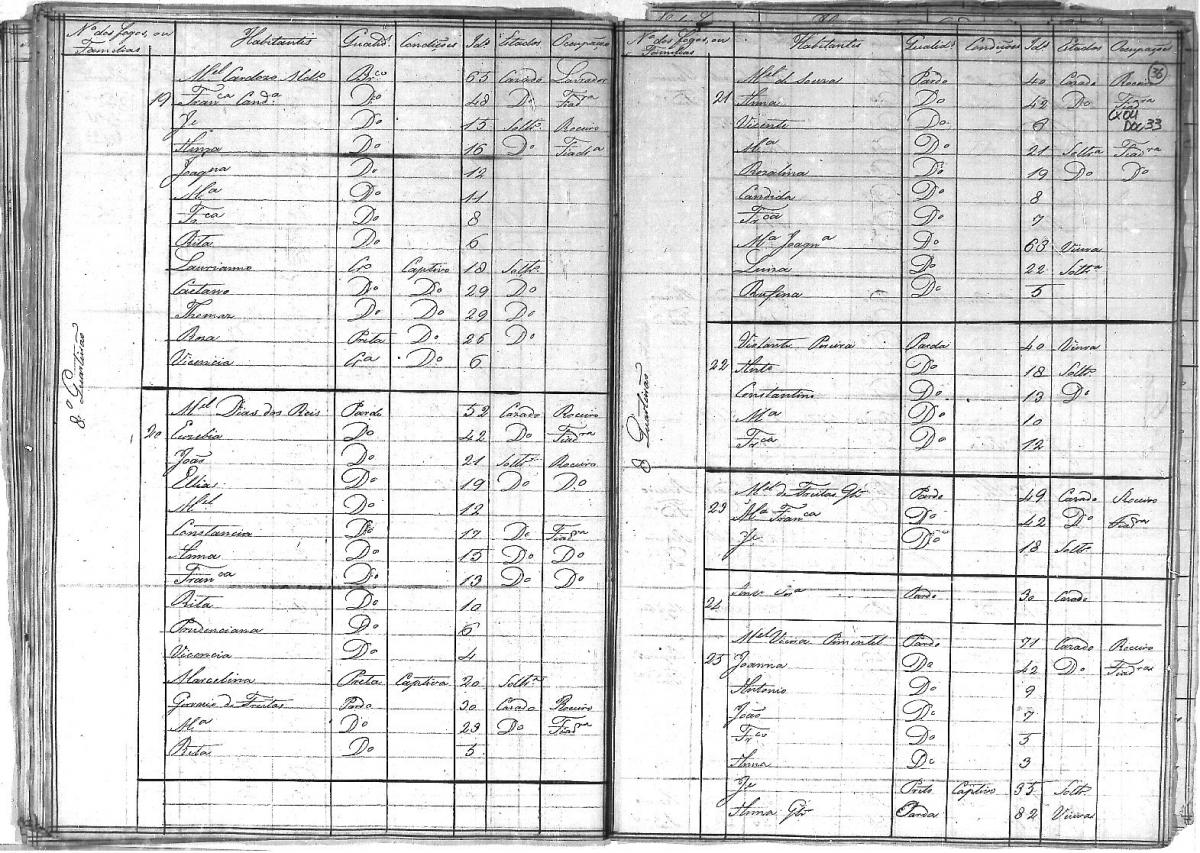 Nos dos Fogos, ou Familias Habitantis Qualid.s Condições Id.s Estados Ocupação
Mel Cardozo Mello Brco 65 Cazado Lavrador
19 Franca Canda Do 48 Do Fiadra
Je Do 15 Solto Roceiro
Anna Do 16 Do Fiadra
Joaqna Do 12
Ma Do 11
Frca Do 8
Rita Do 6
Laurianno Cro Captivo 18 Solto
Caetano Do Do 29 Do
Thomaz Do Do 29 Do
Roza Preta Do 26 Do
Vicencia Cra Do 6
8º Quarteirão
Mel Dias dos Reis Pardo 52 Cazado Roceiro
20 Euzebia Do 42 Do Fiadra
João Do 21 Solto Roceiro
Ellias Do 19 Do Do
Mel Do 12
Constancia Do 17 Do Fiadra
Anna Do 15 Do Do
Franca Do 13 Do Do
Rita Do 10
Prudenciana Do 6
Vicencia Do 4
Marcelina Preta Captiva 20 Solta
Gervazio de Freitas Pardo 30 Cazado Roceiro
Ma Do 23 Do Fiadra
Rita Do 5
Nos dos Fogos, ou Familias Habitantes Qualid.s Condicões Id.s Estados Ocupações
36
Mel de Souza Pardo 40 Cazado Roceiro
21 Anna Do 42 Do Fiadra
CX 04
DOC 33
Vicente Do 6
Ma Do 21 Solta Fiadra
Rozalina Do 19 Do Do
Candida Do 8
Frca Do 7
Ma Joaqna Do 63 Viuva
Luiza Do 22 Solta
Rufina Do 5
Violante Pereira Parda 40 Viuva
22 Anto Do 18 Solto
Constantino Do 13 Do
Ma Do 10
Frca Do 12
8 Quarteirão
Mel de Freitas Pardo 49 Cazado Roceiro
23 Ma Franca Do 42 Do Fiadra
Je Do 18 Solto
24 Pardo 30 Cazado
Mel Vieira Pimentel Pardo 71 Cazado Roceiro
25 Joanna Do 42 Do Fiadra
Antonio Do 9
João Do 7
Frco Do 5
Anna Do 3
Je Preto Captivo 35 Solto
Anna Parda 82 Viuva